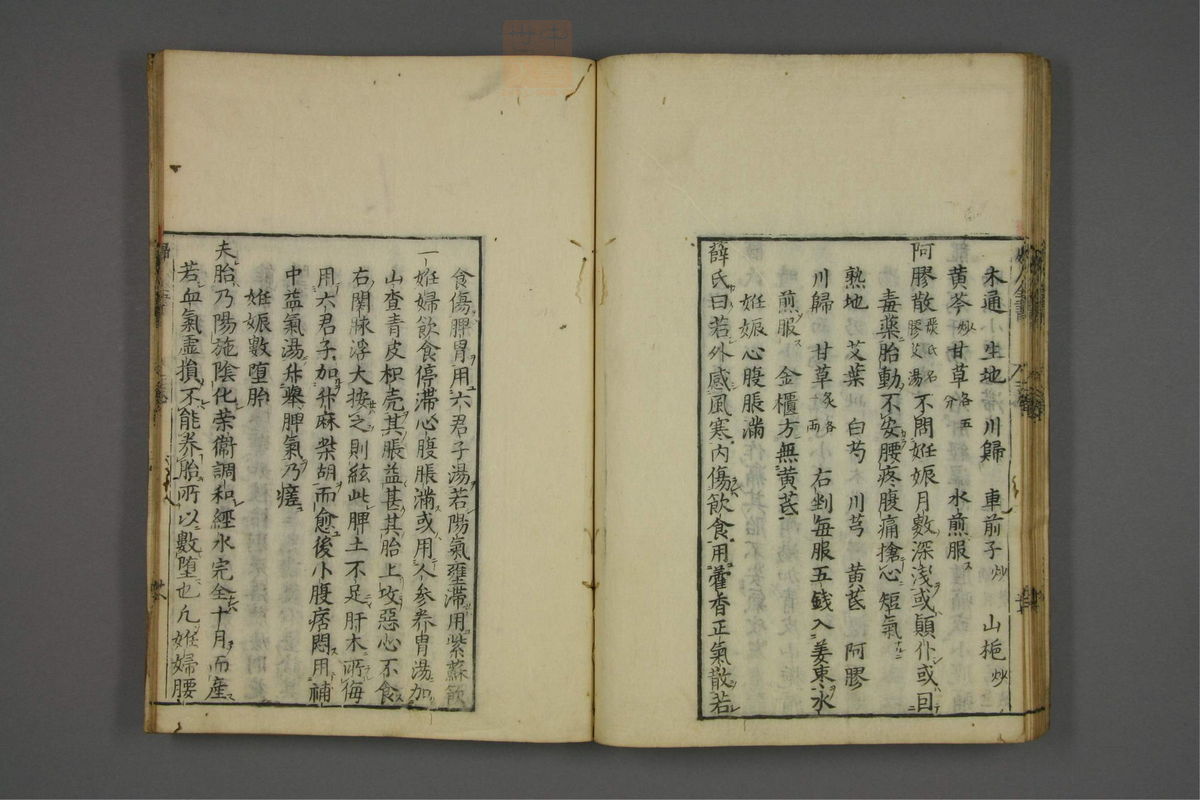 木通 生地 川歸 車前子炒 山梔炒
黄芩炒 甘草各五分 水煎服
阿膠散嚴氏名膠艾湯 不問姙娠月數深淺或顛仆或因
毒藥胎動不安腰疼腹痛搶心短氣
熟地 艾葉 白芍 川芎 黄芪 阿膠
川歸 甘草炙各一兩 右剉每服五錢入姜東水
煎服 金櫃方無黄芪
姙娠心腹脹滿
薛氏曰若外感風寒内傷飲食用藿香正氣散若
食傷脾胃用六君子湯若陽氣壅滯用紫蘇飲
一姙婦飲食停滯心腹脹滿或用人參養胃湯加
山查青皮枳壳其脹益甚其胎上攻惡心不食
右関脉浮大按之則絃此脾土不足肝木所侮
用六君子加升麻柴胡而愈後小腹痞悶用補
中益氣湯升舉脾氣乃瘥
姙娠數堕胎
夫胎乃陽施陰化榮衛調和經水完全十月而產
若血氣虚損不能养胎所以數堕也凡姙婦腰